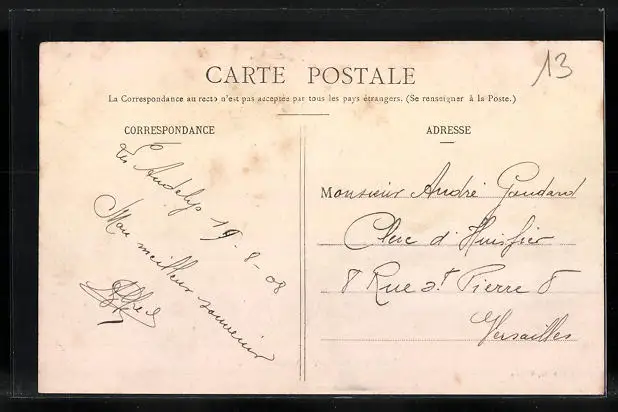 13
CARTE POSTALE
La Correspondance au recto n'est pas acceptée par tous les pays étrangers. (Se renseigner à la Poste.)
CORRESPONDANCE
ADRESSE
Les Andelys 19-8-08
Mon meilleur souvenir
Alfred
Monsieur André Goudard
Clerc d'Huissier
8 Rue St Pierre 8
Versailles